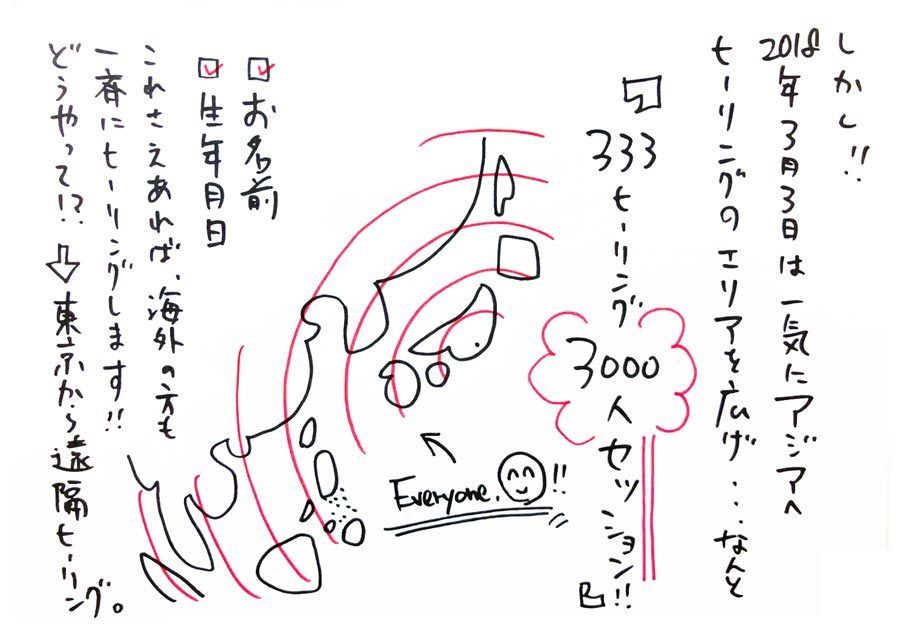 しかし!!
2018年3月3日は一気にアジアへ
ヒーリングのエリアを広げ・・・なんと
『333ヒーリング3000人セッション』!!
Everyone. !!
☑お名前
☑生年月日
これさえあれば、海外の方も
一斉にヒーリングします!!
どうやって!?⇨東京から遠隔ヒーリング。